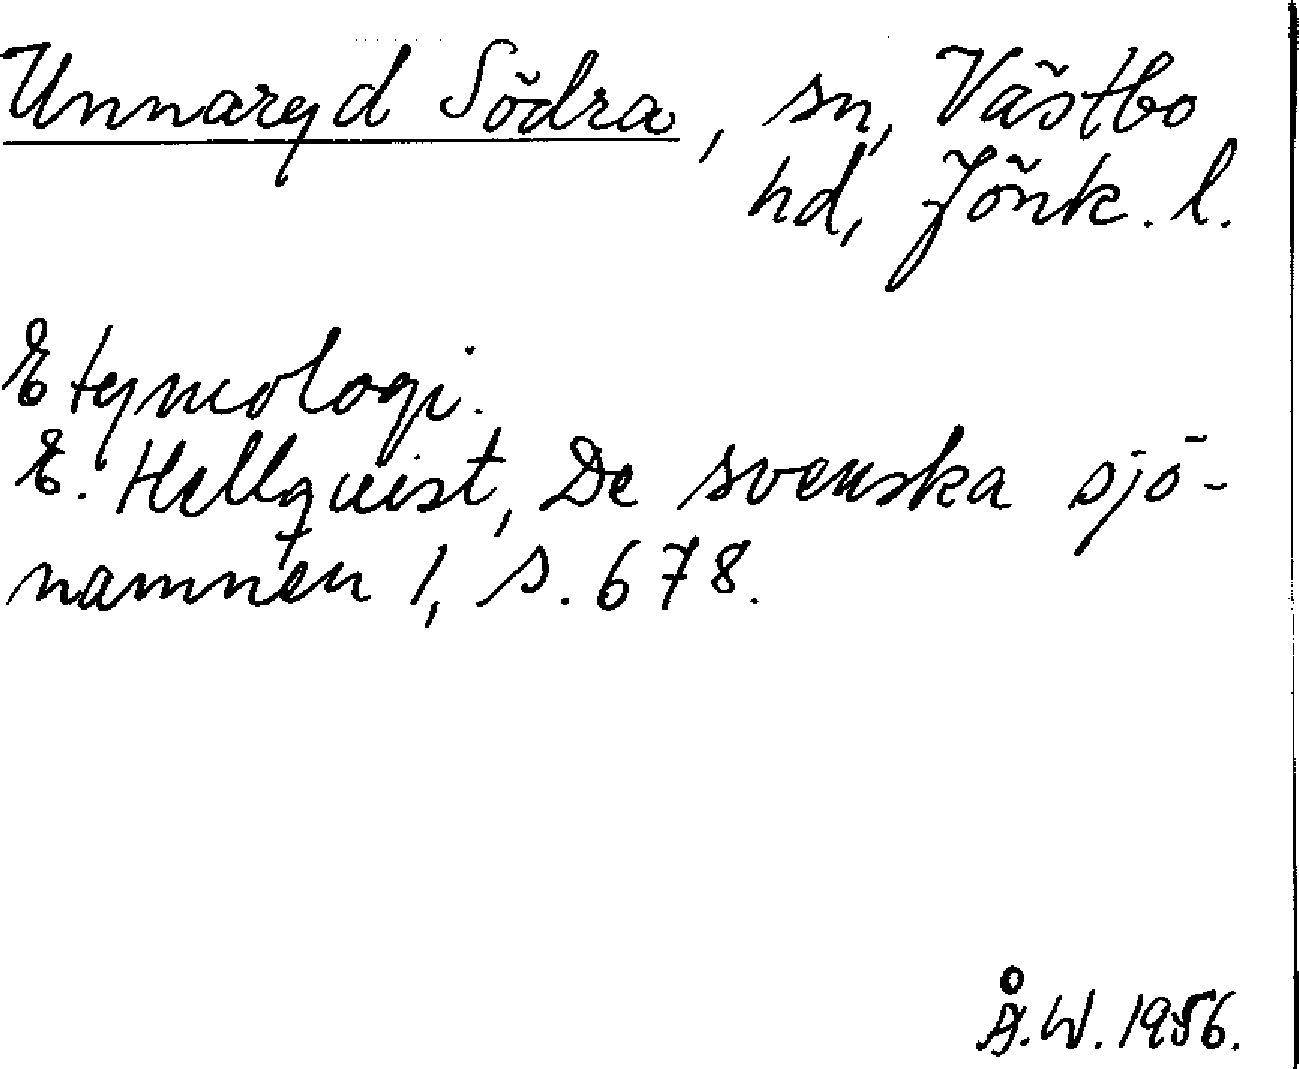 Unnaryd Södra, sn, Västbo
hd, Jönk. l.
Etymologi.
E. Hellquist, De svenska sjö-
namnen 1, s. 678.
Å.W. 1956.